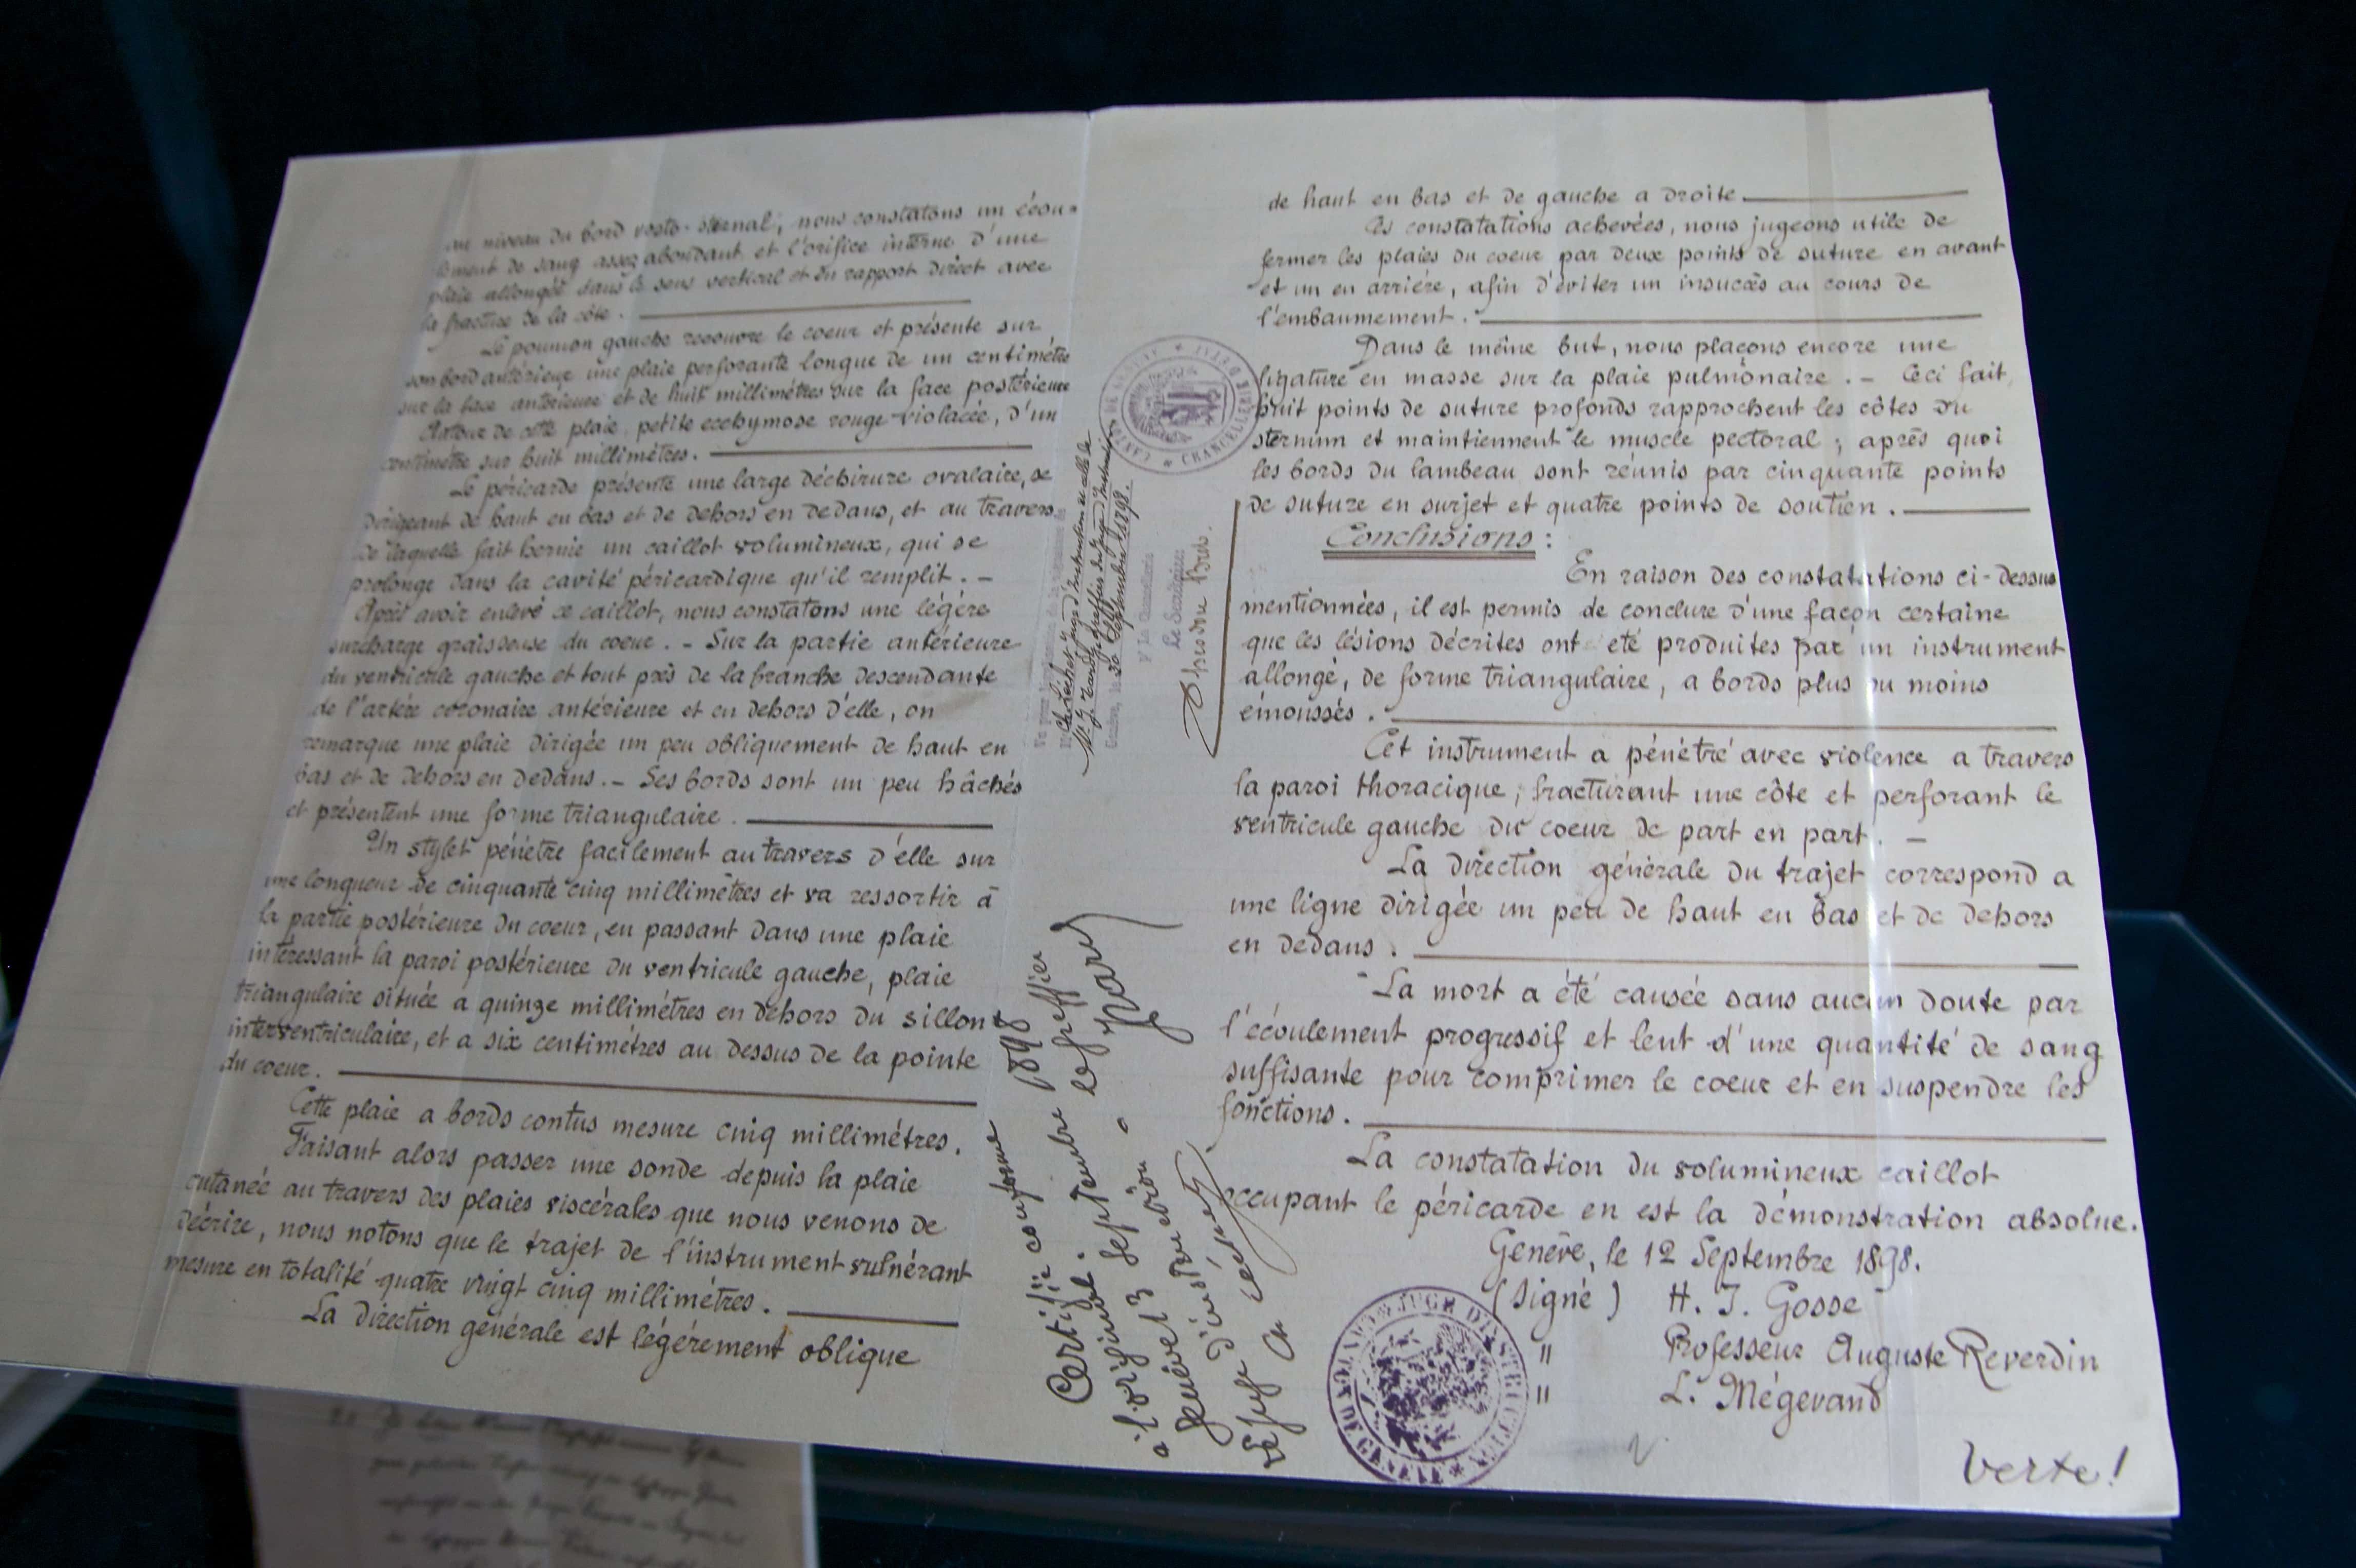 au niveau du bord costo-sternal; nous constatons un écou-
lement de sang assez abondant et l'orifice interne d'une
plaie allongée dans le sens vertical et en rapport direct avec
la fracture de la côte.
Le poumon gauche recouvre le coeur et présente sur
son bord antérieur une plaie perforante longue de un centimètre
sur la face antérieure et de huit millimètres sur la face postérieure
Autour de cette plaie, petite ecchymose rouge-violacée, d'un
centimètre sur huit millimètres.
Le péricarde présente une large déchirure ovalaire, se
dirigeant de haut en bas et de dehors en dedans, et au travers
de laquelle fait hernie un caillot volumineux, qui se
prolonge dans la cavité péricardique qu'il remplit. -
Après avoir enlevé ce caillot, nous constatons une légère
surcharge graisseuse du coeur. - Sur la partie antérieure
du ventricule gauche et tout près de la branche descendante
de l'artère coronaire antérieure et en dehors d'elle, on
remarque une plaie dirigée un peu obliquement de haut en
bas et de dehors en dedans. - Ses bords sont un peu hâchés
et présentent une forme triangulaire.
Un stylet pénètre facilement au travers d'elle sur
une longueur de cinquante cinq millimètres et va ressortir à
la partie postérieure du coeur, en passant dans une plaie
intéressant la paroi postérieure du ventricule gauche, plaie
triangulaire située a quinze millimètres en dehors du sillon
interventriculaire, et a six centimétres au dessus de la pointe
du coeur.
Cette plaie a bords contus mesure cinq millimétres.
Faisant alors passer une sonde depuis la plaie
cutanée au travers des plaies viscérales que nous venons de
décrire, nous notons que le trajet de l'instrument vulnérant
mesure en totalité quatre vingt cinq millimétres.
La direction générale est légérement oblique
CHANCELLERIE
Le Secrétaire:
Certifié conforme
à l'original.
Genève 13 Septembre 1898
Le Juge d'instruction
Le Greffier
de haut en bas et de gauche a droite
Ces constatations achevées, nous jugeons utile de
fermer les plaies du coeur par deux points de suture en avant
et un en arriére, afin d'éviter un insuccès au cours de
l'embaumement.
Dans le même but, nous plaçons encore une
ligature en masse sur la plaie pulmonaire. - Ceci fait,
huit points de suture profonds rapprochent les côtes du
sternum et maintiennent le muscle pectoral; après quoi
les bords du lambeau sont réunis par cinquante points
de suture en surjet et quatre points de soutien.
Conclusions:
En raison des constatations ci-dessus
mentionnées, il est permis de conclure d'une façon certaine
que les lésions décrites ont été produites par un instrument
allongé, de forme triangulaire, a bords plus ou moins
émoussés.
Cet instrument a pénétré avec violence a travers
la paroi thoracique, fracturant une côte et perforant le
ventricule gauche du coeur de part en part. -
La direction générale du trajet correspond a
une ligne dirigée un peu de haut en bas et de dehors
en dedans.
La mort a été causée sans aucun doute par
l'écoulement progressif et lent d'une quantité de sang
suffisante pour comprimer le coeur et en suspendre les
fonctions.
La constatation du volumineux caillot
occupant le péricarde en est la démonstration absolue.
Genève, le 12 Septembre 1898.
(Signé) H. J. Gosse
" Professeur Auguste Reverdin
" L. Mégevand
JUGE D'INSTRUCTION
Verte!